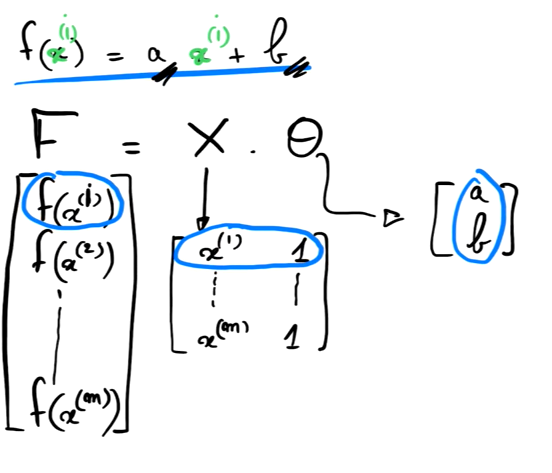 f(x^(i)) = a x^(i) + b
F = X . Θ
[f(x^(1)) f(x^(2)) ⋮ f(x^(m))]
[x^(1) 1 ⋮ ⋮ x^(m) 1]
[a b]